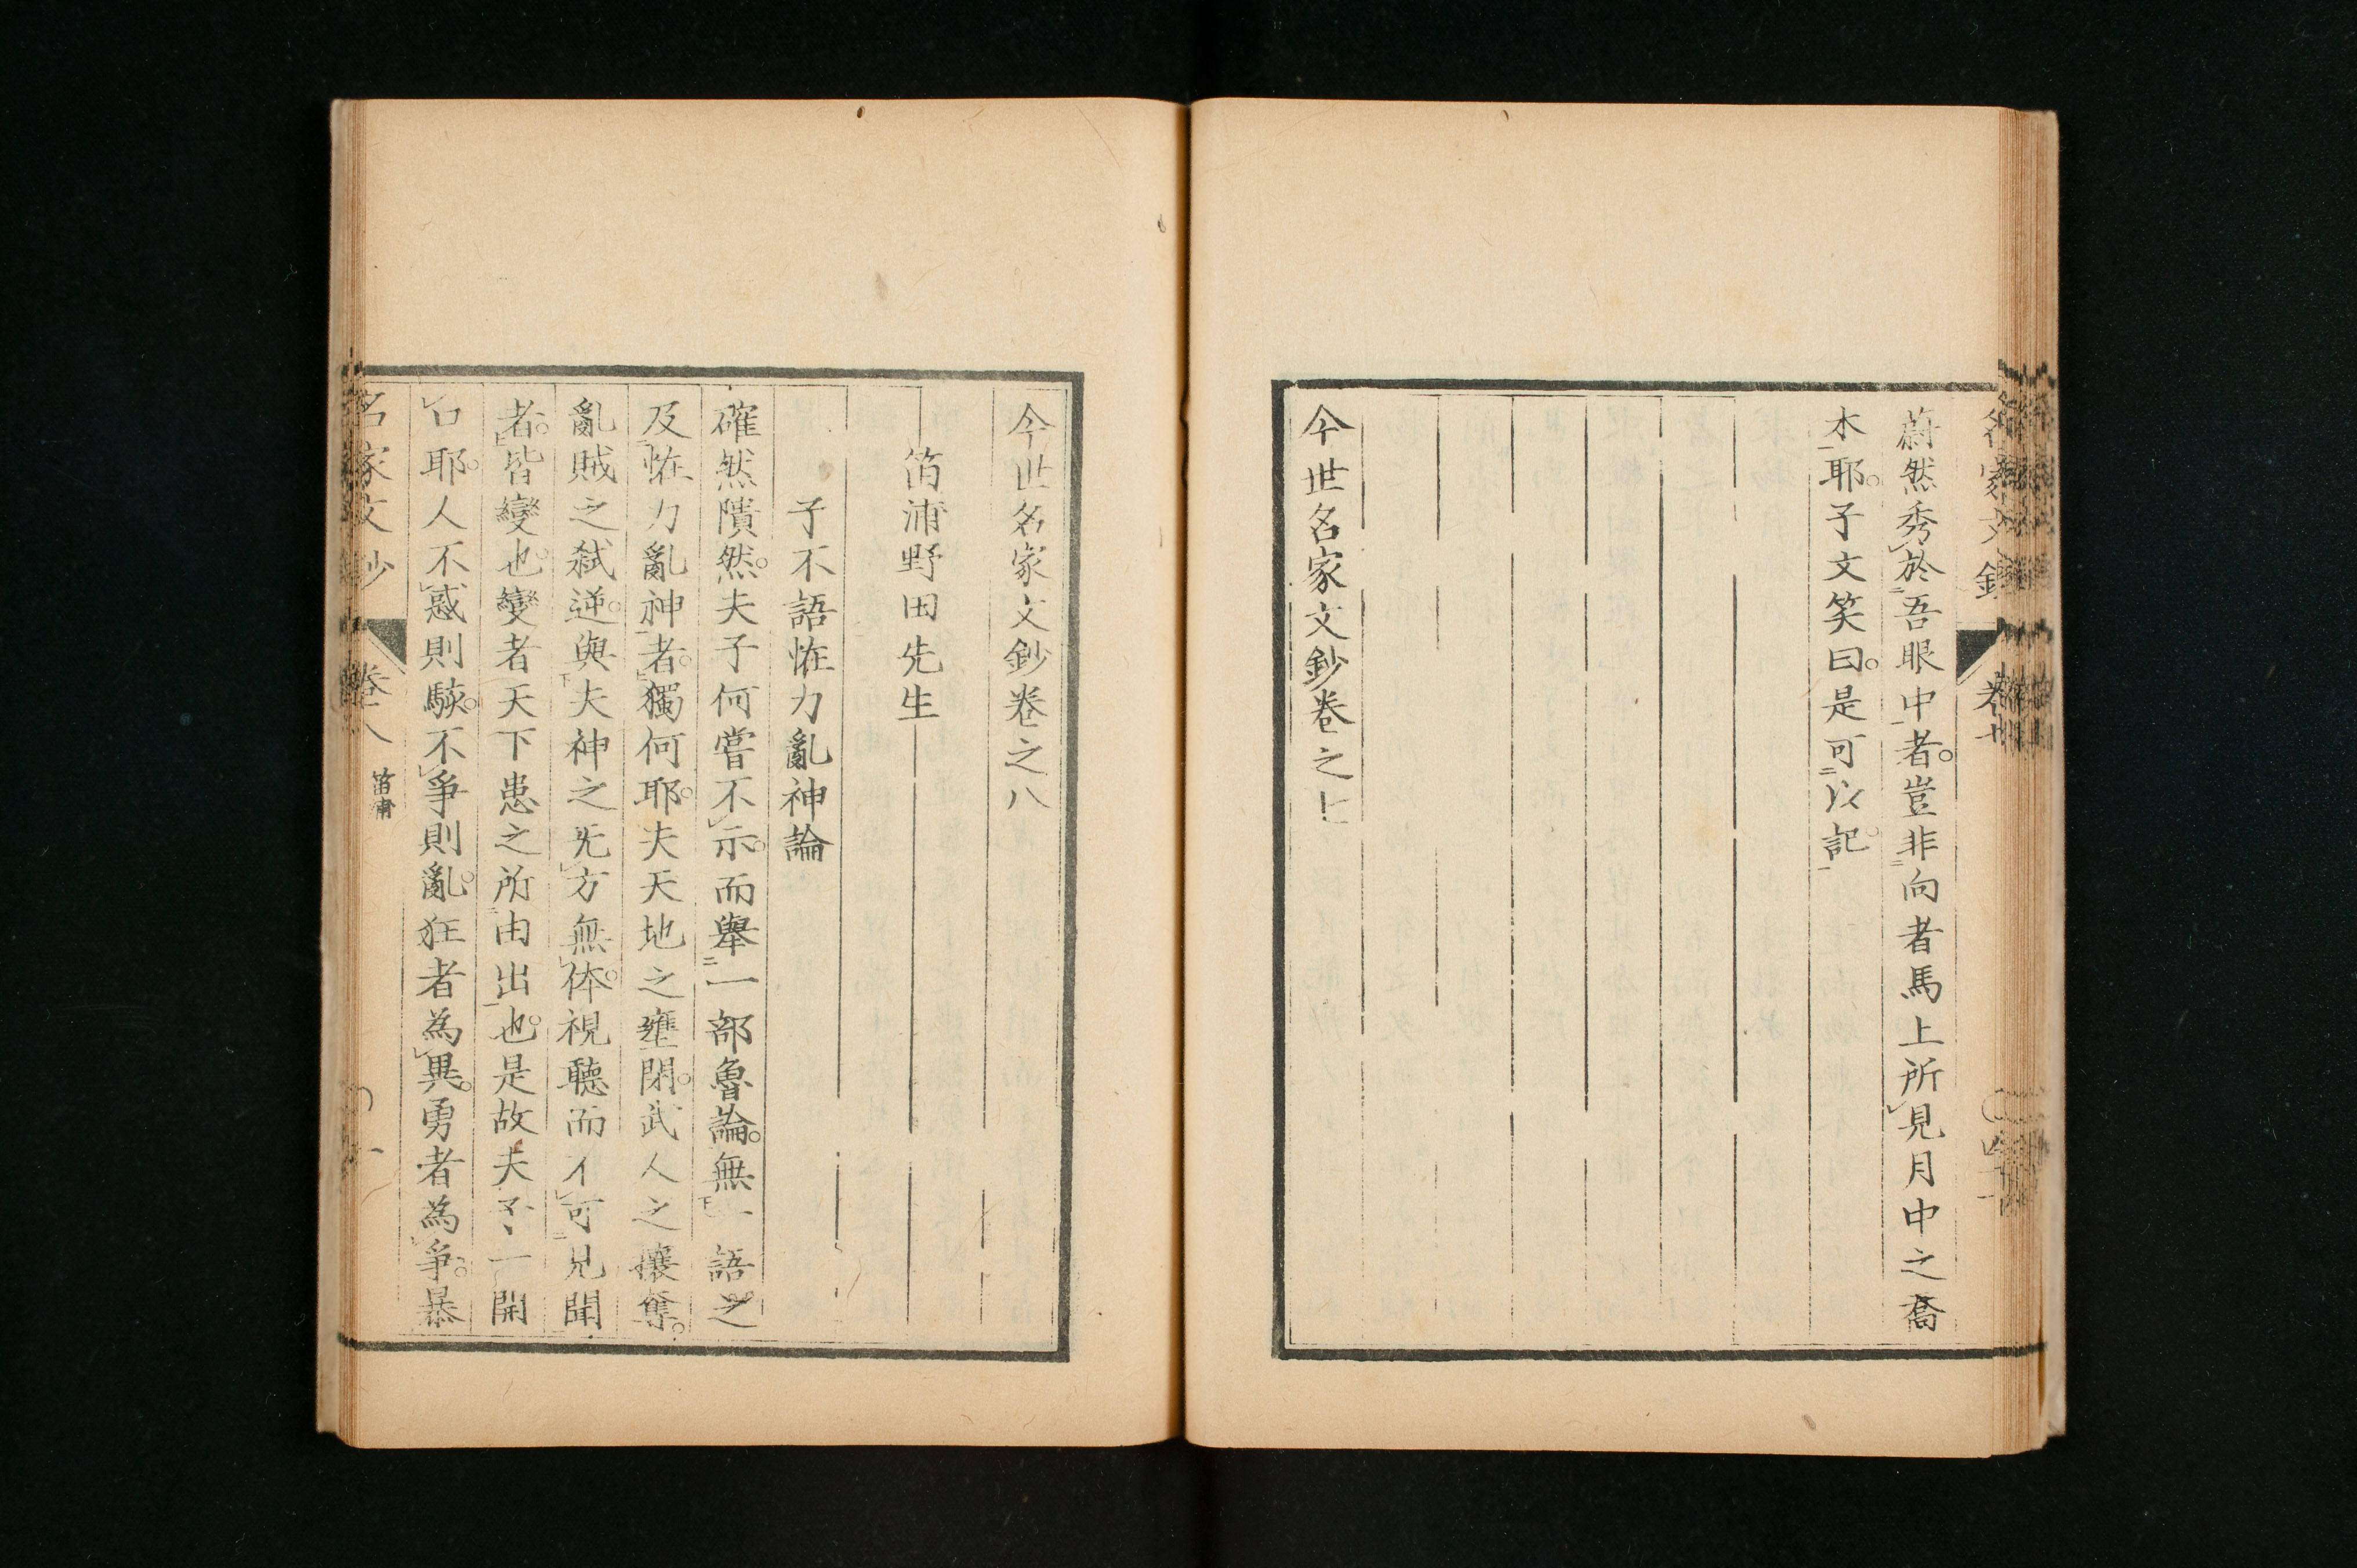 蔚然秀於吾眼中者。豈非向者馬上所見月中之喬
木耶。子文笑曰。是可以記。
今世名家文鈔卷之七
今世名家文鈔卷之八
笛浦野田先生
子不語恠力亂神論
確然隤然。夫子何嘗不示。而舉一部魯論。無一語之
及恠力亂神者。獨何耶。夫天地之壅閉。武人之攘奪。
亂賊之弑逆。與夫神之无方無体。視聽而不可見聞
者。皆變也。變者天下患之所由出也。是故夫子一開
口耶。人不惑則駭。不爭則亂。狂者為異。勇者為爭。暴
名家文鈔 卷八 笛浦 一